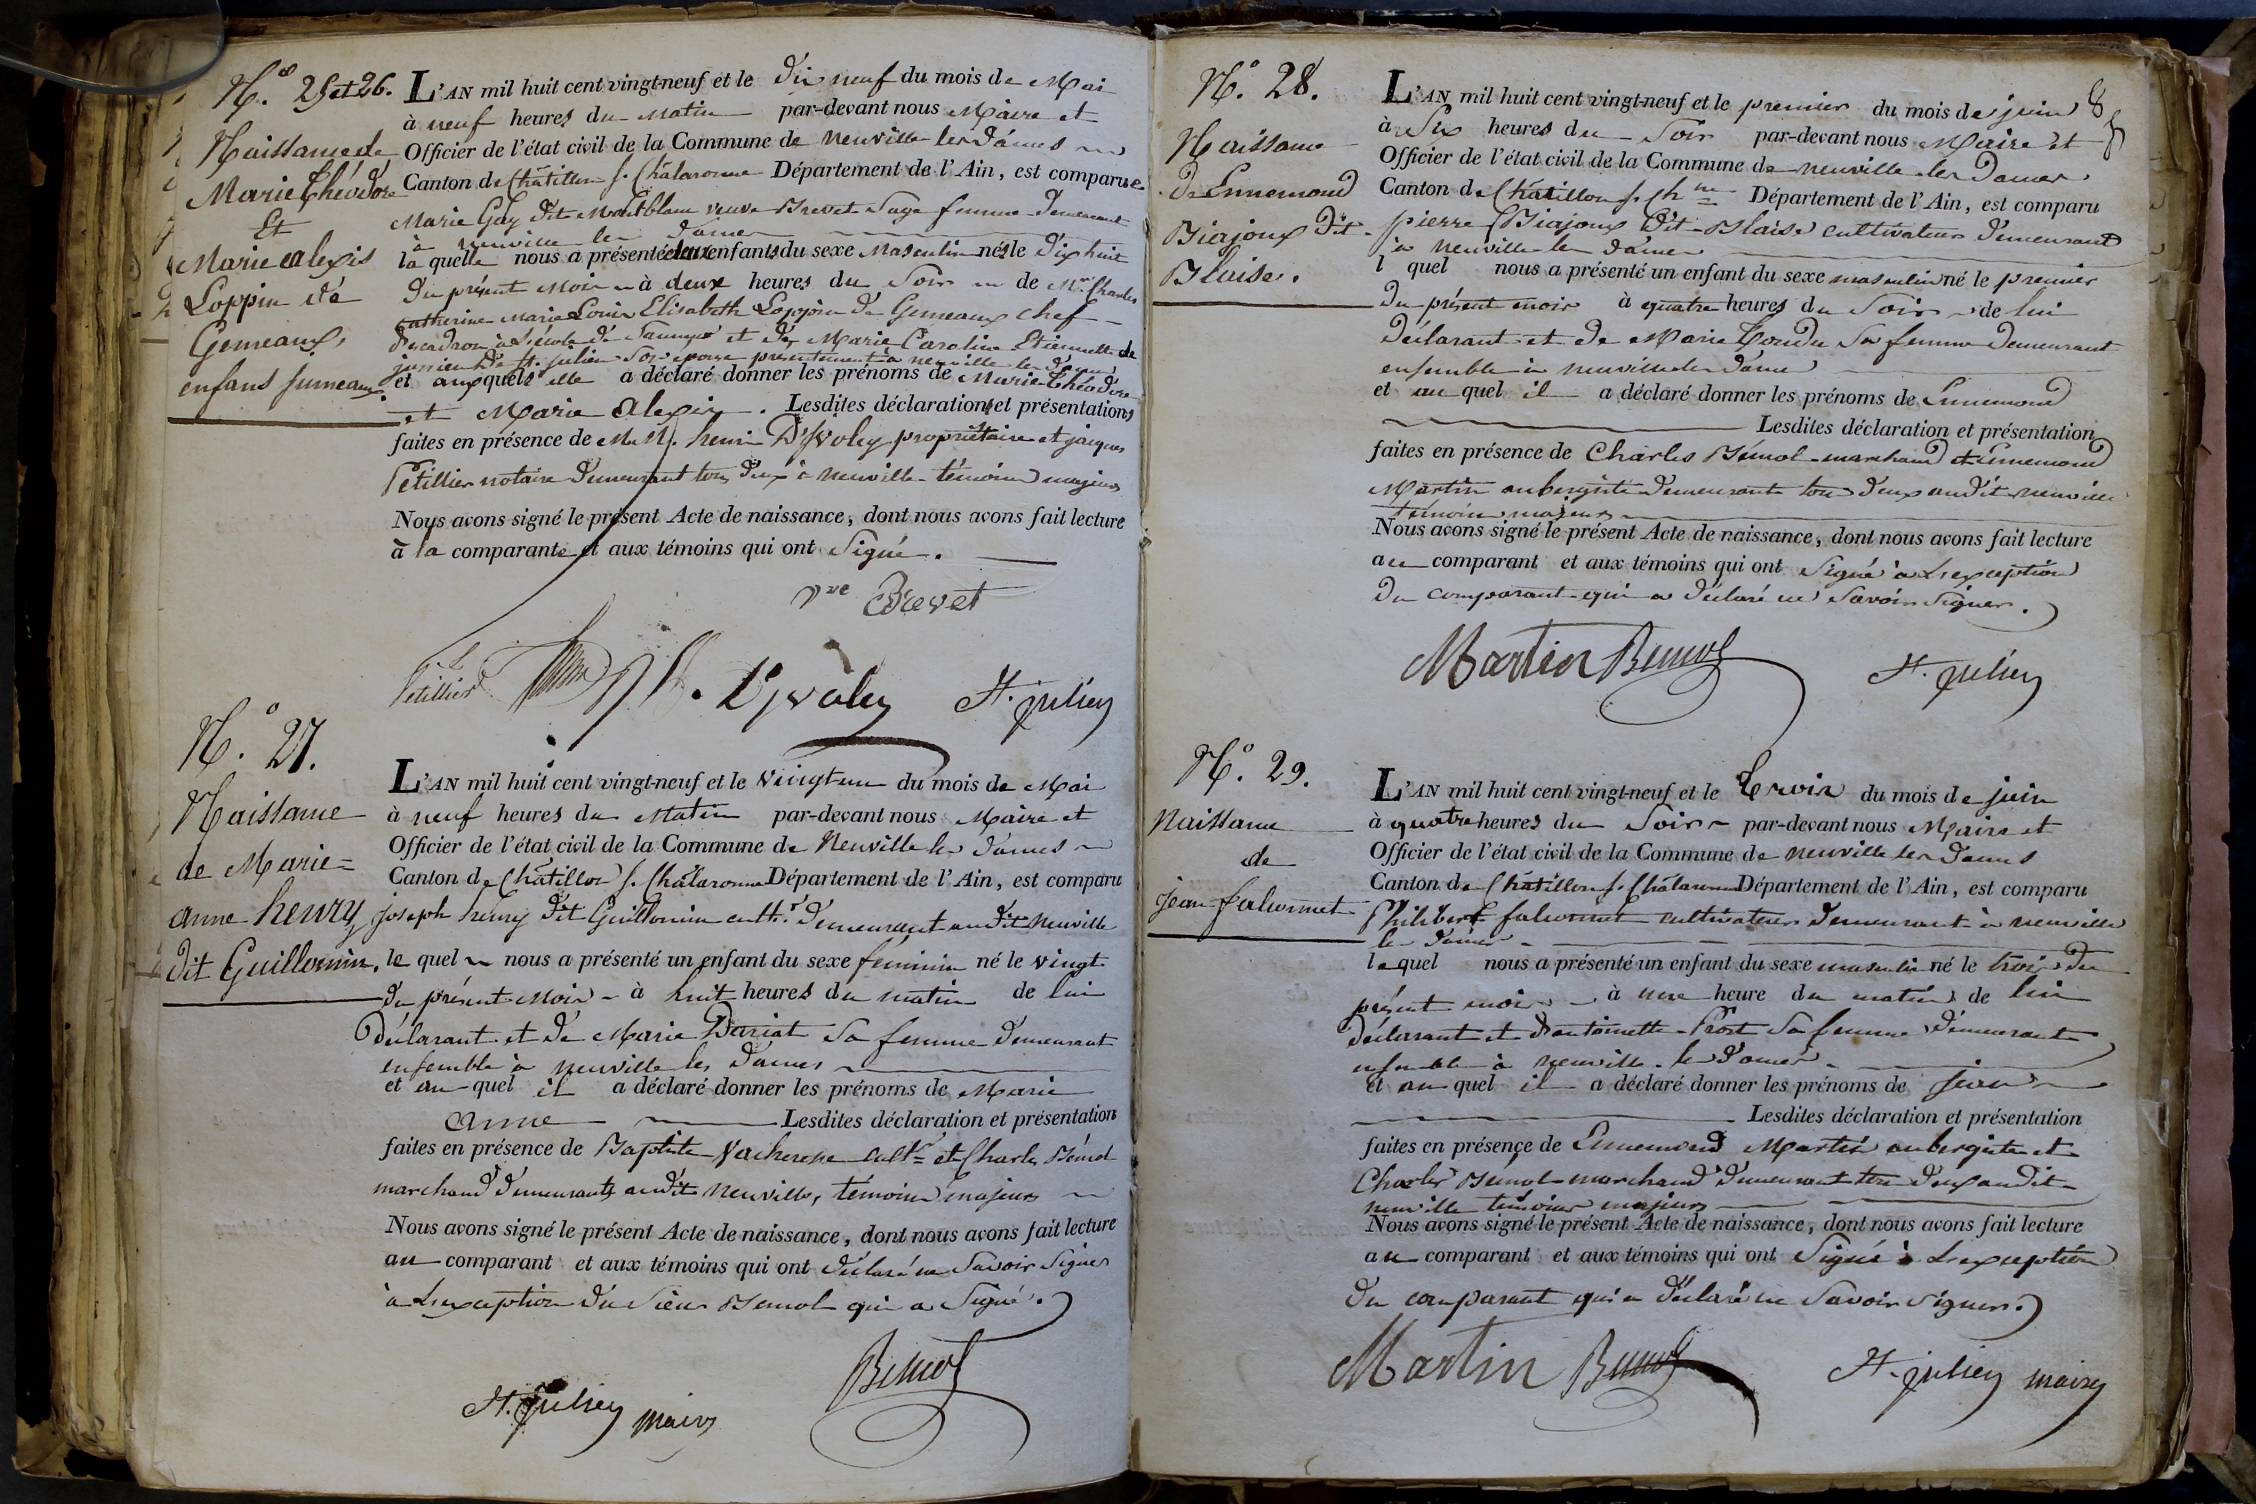 N.° 25 et 26.
Naissance de
Marie Théodore
Et
Marie alexis
Loppin de
Gemeaux,
enfans jumeaux.
L'AN mil huit cent vingt-neuf et le dix neuf du mois de Mai
à neuf heures du matin par-devant nous Maire et
Officier de l'état civil de la Commune de neuville les dames
Canton de Châtillon s. Châlaronne Département de l'Ain, est comparue
Marie Gay dit Montblanc veuve Brevet Sage femme demeurant
à neuville les dames
la quelle nous a présenté deux enfants du sexe Masculin nés le dix huit
du présent mois à deux heures du Soir de Mr. Charles
Catherine Marie Louis Elisabeth Loppin de Gemeaux chef
d'escadron à L'école de Saumur et de Marie Caroline Etiennette de
jussieu de St. julien Son épouse presentement à neuville les dames
et auxquels elle a déclaré donner les prénoms de Marie Théodore
et Marie Alexis. Lesdites déclarations et présentations
faites en présence de M.M. henri D'yvoley propriétaire et jacques
Petillier notaire demeurant tous deux à neuville témoins majeurs
Nous avons signé le présent Acte de naissance, dont nous avons fait lecture
à la comparante et aux témoins qui ont Signé.
Vve Brevet
Petillier H. D'yvoley St. julien
N.° 27.
Naissance
de Marie=
anne henry
dit Guillomin.
L'AN mil huit cent vingt-neuf et le vingt un du mois de Mai
à neuf heures du Matin par-devant nous Maire et
Officier de l'état civil de la Commune de Neuville les dames
Canton de Châtillon s. Châlaronne Département de l'Ain, est comparu
joseph henry dit Guillomin cultr. demeurant audit Neuville
le quel nous a présenté un enfant du sexe féminin né le vingt
du présent Mois à huit heures du matin de lui
déclarant et de Marie Dariat Sa femme demeurant
ensemble à neuville les dames
et au quel il a déclaré donner les prénoms de Marie
anne Lesdites déclaration et présentation
faites en présence de Baptiste Vacheresse cultr. et Charles Bémol
marchand demeurants audit Neuville, témoins majeurs
Nous avons signé le présent Acte de naissance, dont nous avons fait lecture
au comparant et aux témoins qui ont déclaré ne Savoir Signer
à L'exception du Sieur Bemol qui a Signé.
St. julien maire Bemol
8
N.° 28.
Naissance
d'Ennemond
Biajoux dit
Blaise.
L'AN mil huit cent vingt-neuf et le premier du mois de juin
à Six heures du Soir par-devant nous Maire et
Officier de l'état civil de la Commune de neuville les Dames
Canton de Châtillon s. Chne Département de l'Ain, est comparu
pierre Biajoux dit Blaise cultivateur demeurant
à Neuville les dames
l quel nous a présenté un enfant du sexe masculin né le premier
du présent mois à quatre heures du Soir de lui
déclarant et de Marie Tondu Sa femme demeurant
ensemble à neuville les dames
et au quel il a déclaré donner les prénoms de Ennemond
Lesdites déclaration et présentation
faites en présence de Charles Bémol marchand et Ennemond
Martin aubergiste demeurants tous deux audit neuville
témoins majeurs
Nous avons signé le présent Acte de naissance, dont nous avons fait lecture
au comparant et aux témoins qui ont Signé à L'exception
du comparant qui a déclaré ne Savoir Signer.
Martin Bemol St. julien
N.° 29.
Naissance
de
jean falconnet
L'AN mil huit cent vingt-neuf et le trois du mois de juin
à quatre heures du Soir par-devant nous Maire et
Officier de l'état civil de la Commune de neuville les dames
Canton de Châtillon s. Châlaronne Département de l'Ain, est comparu
Philibert falconnet cultivateur demeurant à neuville
les dames
lequel nous a présenté un enfant du sexe masculin né le trois du
présent mois à une heure du matin de lui
déclarant et d'antoinette Prost Sa femme demeurant
ensemble à neuville les dames
et au quel il a déclaré donner les prénoms de jean
Lesdites déclaration et présentation
faites en présence de Ennemond Martin aubergiste et
Charles Bemol marchand demeurant tous deux audit
neuville témoins majeurs
Nous avons signé le présent Acte de naissance, dont nous avons fait lecture
au comparant et aux témoins qui ont Signé à L'exception
du comparant qui a déclaré ne Savoir Signer.
Martin Bemol St. julien maire